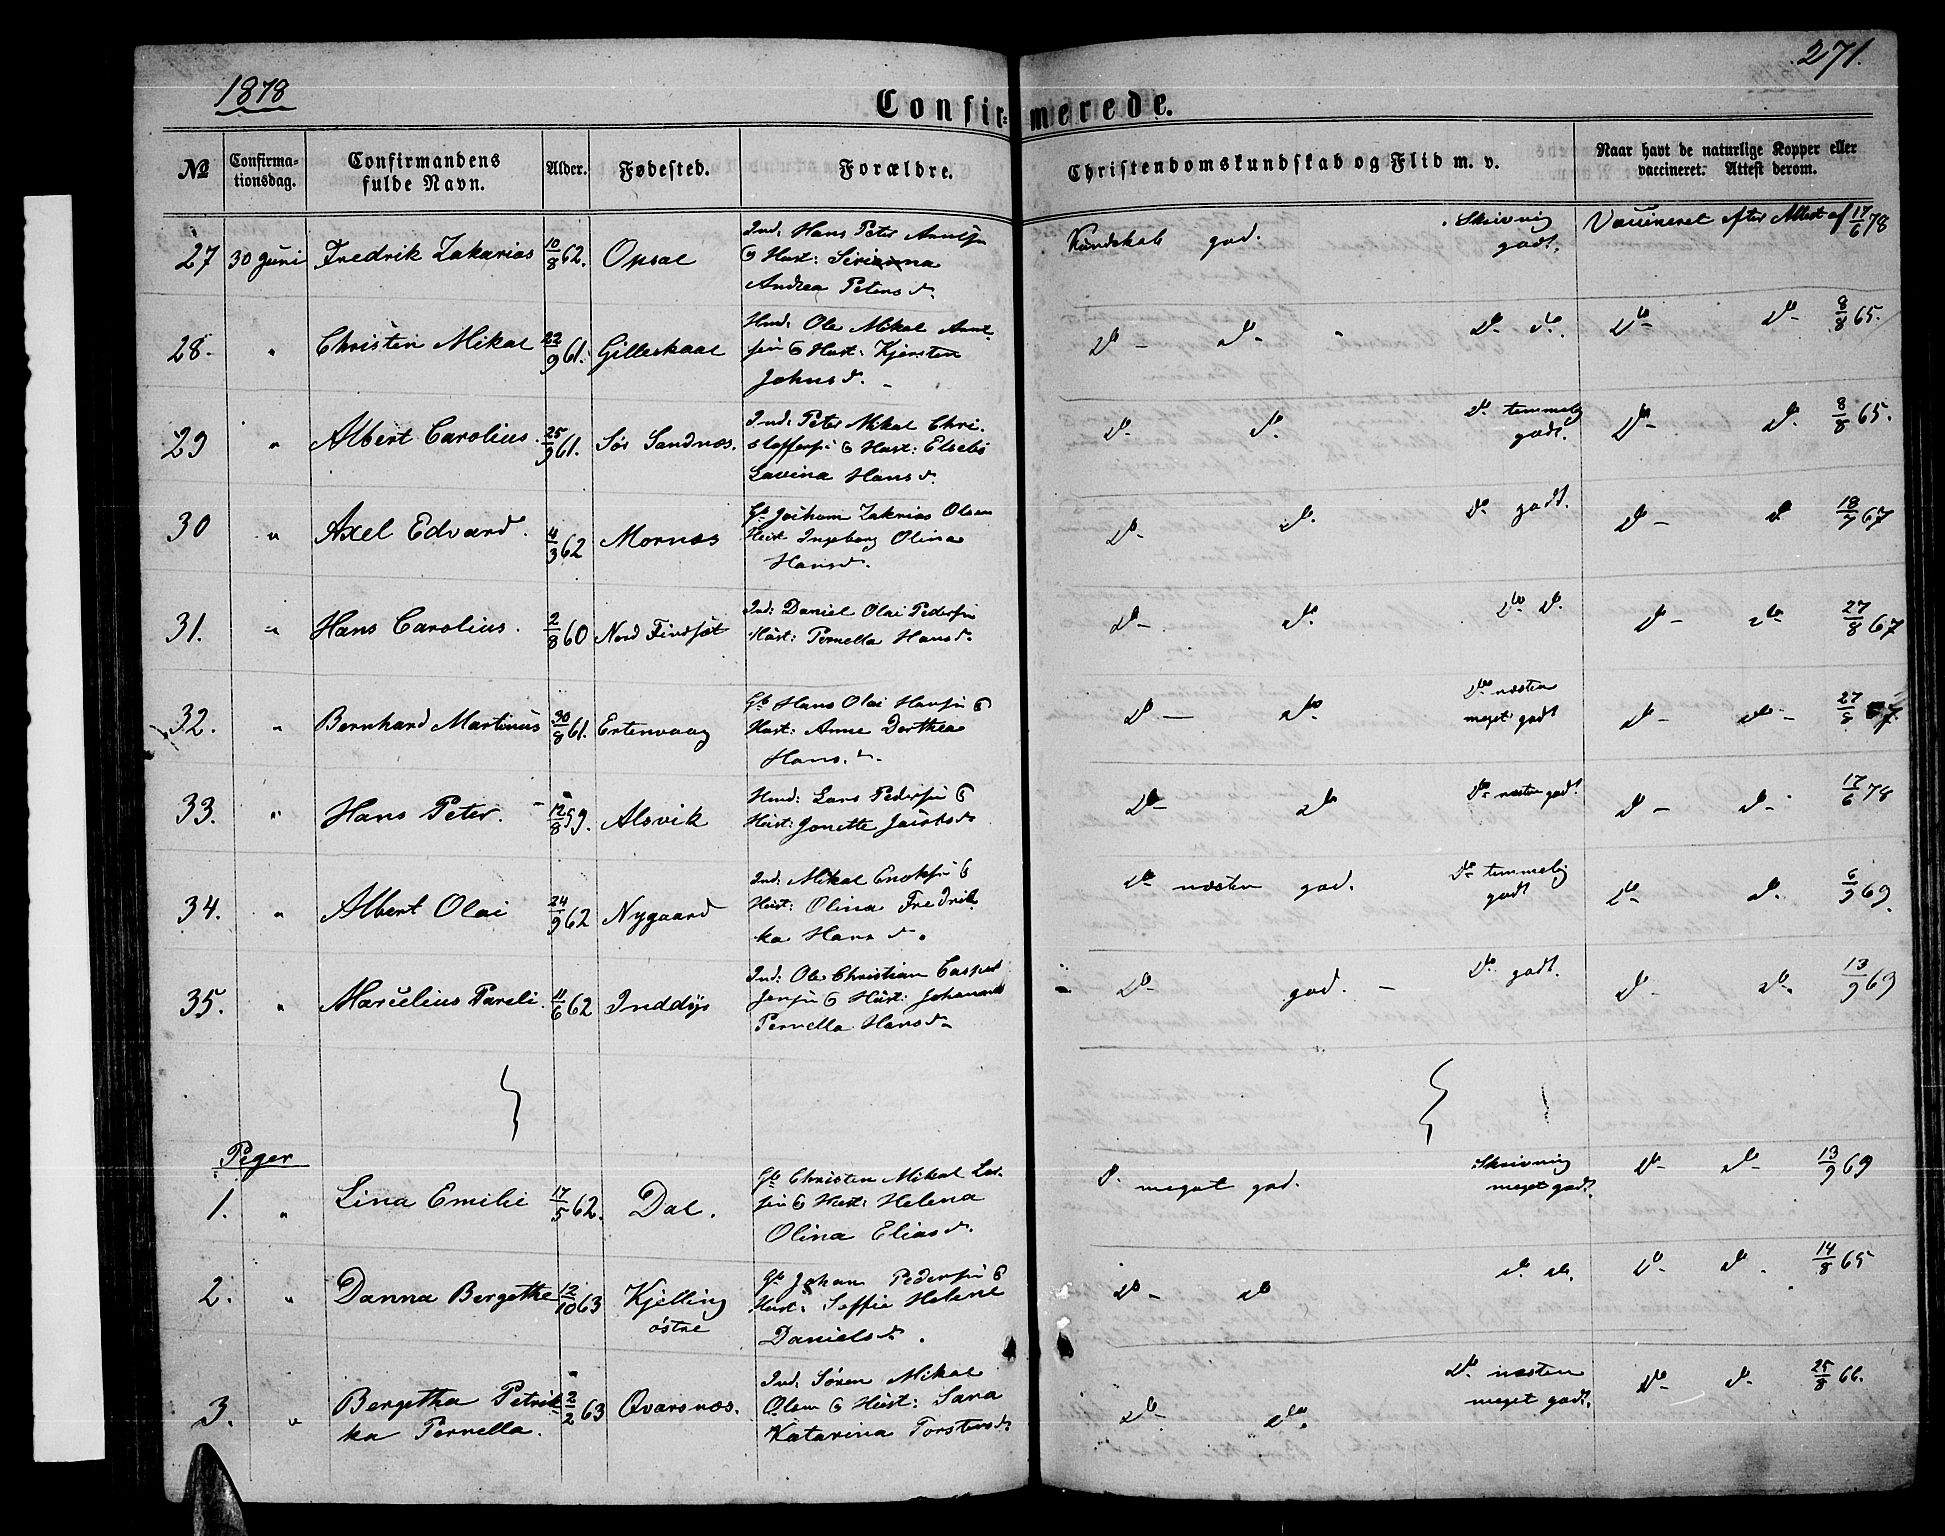 1878
271.
Confir- merede.
No
Confirma-
tionsdag.
Confirmandens
fulde Navn.
Alder.
Fødested.
Forældre.
Christendomskundskab og Flid m. v.
Naar havt de naturlige Kopper eller
vaccineret. Attest derom.
27 30 Juni Fredrik Zakarias 10/8 62. Opsal
Ind: Hans Peter Arntsen
& Hust:
Andrea Petersd.
Kundskab god. Skrivning
godt.
Vaccineret efter Attest af 17/6 78
28. " Christen Mikal 22/9 61. Gilleskaal
Hmd: Ole Mikal Arnt-
sen & Hust: Kjersten
Johnsd.
Do - Do " Do Do. Do - Do - 8/8 65.
29 " Albert Carolius. 25/9 61. Sør Sandnæs.
Ind: Peter Mikal Chri-
stoffersen & Hust: Elsebe
Lavina Hansd.
Do - Do. Do temmelig
godt.
Do - Do. 8/8 65.
30 " Axel Edvard. 4/3 62 Mornæs
Gb Jochum Zakrias Olsen
Hust Ingeborg Olina
Hansd.
Do - Do. Do godt. Do - Do 18/7 67
31. " Hans Carolius. 2/8 60 Nord Findsæt
Ind: Daniel Olai Pedersen
Hust: Pernella Hansd.
Do - Do. Do Do. Do - Do 27/8 67
32. " Bernhard Martinus 30/8 61. Ertenvaag
Gb Hans Olai Hansen &
Hust: Anne Dorthea
Hans.d.
Do - Do Do næsten
meget godt
Do - Do - 27/8 67.
33. " Hans Peter. 12/8 59. Alsvik
Hmd: Lars Pedersen &
Hust: Jonette Jacobsd.
Do - Do Do næsten godt. Do - Do - 17/6 78
34. " Albert Olai 24/9 62 Nygaard
Ind: Mikal Enoksen &
Hust: Olina Fredrik-
ka Hansd.
Do næsten god. Do temmelig
godt
Do - Do. 6/9 69.
35. " Marcelius Pareli. 11/6 62 Inddyr
Ind: Ole Christian Casper
Jensen & Hust: Johanna
Pernella Hansd.
Do - god. - Do godt. Do - Do. 13/9 69
Piger
1. " Lina Emilie 17/5 62. Dal.
Gb Christen Mikal Lar-
sen & Hust: Helena
Olina Eliasd.
meget god. Skrivning
meget godt.
Do - Do - 13/9 69
2. " Danna Bergethe 12/10 63 Kjelling
østre
Gb Johan Pedersen &
Hust: Soffie Helene
Danielsd.
Do - Do Do Do. Do - Do. 14/8 65
3. " Bergetha Petrik-
ka Pernella. 2/2 63 Qvarsnæs.
Ind: Søren Mikal
Olsen & Hust: Sara
Katarina Torstensd.
Do - Do. Do næsten
meget godt.
Do - Do - 25/8 66.